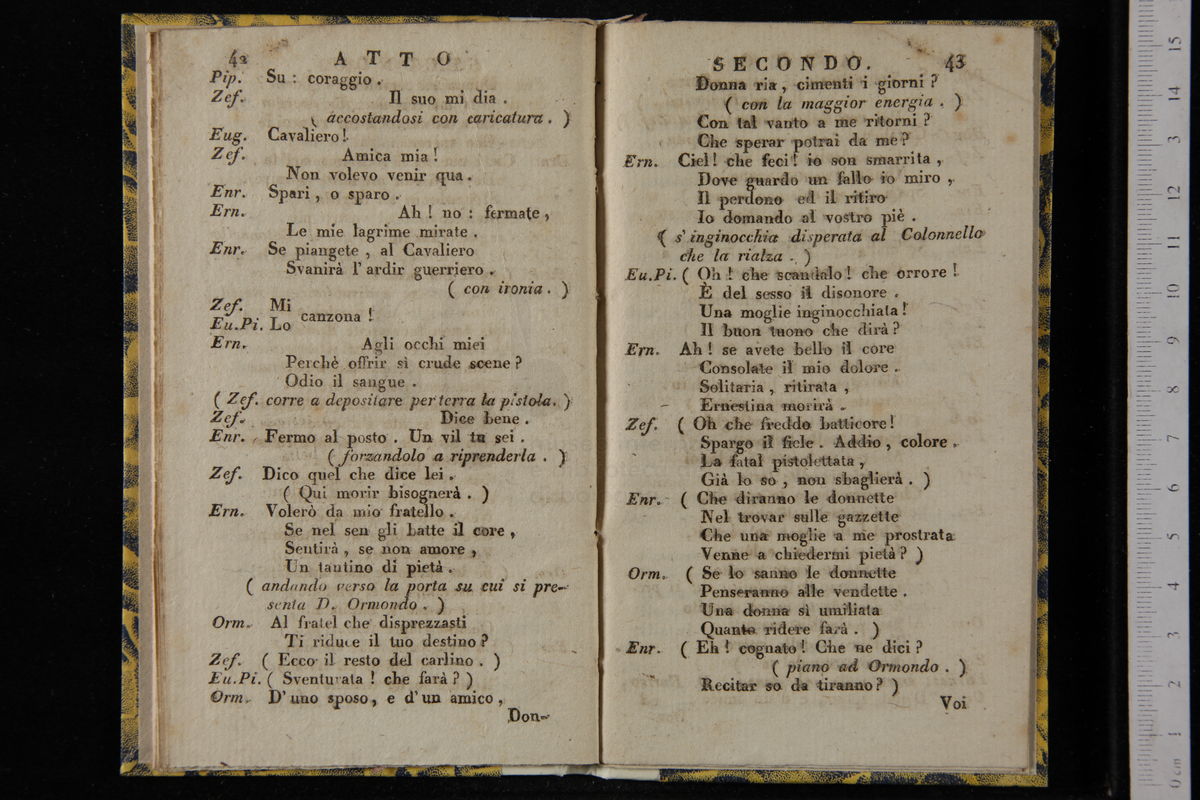 42 ATTO
Pip. Su : coraggio .
Zef. Il suo mi dia .
( accostandosi con caricatura . )
Eug. Cavaliero !
Zef. Amica mia !
Non volevo venir qua .
Enr. Spari , o sparo .
Ern. Ah ! no : fermate ,
Le mie lagrime mirate .
Enr. Se piangete , al Cavaliero
Svanirà l' ardir guerriero .
( con ironia . )
Zef. Mi
Eu.Pi. Lo canzona !
Ern. Agli occhi miei
Perchè offrir sì crude scene ?
Odio il sangue .
( Zef. corre a depositare per terra la pistola. )
Zef. Dice bene .
Enr. Fermo al posto . Un vil tu sei .
( forzandolo a riprenderla . )
Zef. Dico quel che dice lei .
( Qui morir bisognerà . )
Ern. Volerò da mio fratello .
Se nel sen gli batte il core ,
Sentirà , se non amore ,
Un tantino di pietà .
( andando verso la porta su cui si pre-
senta D. Ormondo . )
Orm. Al fratel che disprezzasti
Ti riduce il tuo destino ?
Zef. ( Ecco il resto del carlino . )
Eu.Pi. ( Sventurata ! che farà ? )
Orm. D' uno sposo , e d' un amico ,
Don-
SECONDO. 43
Donna ria , cimenti i giorni ?
( con la maggior energia . )
Con tal vanto a me ritorni ?
Che sperar potrai da me ?
Ern. Ciel ! che feci ! io son smarrita ,
Dove guardo un fallo io miro ,
Il perdono ed il ritiro
Io domando al vostro piè .
( s' inginocchia disperata al Colonnello
che la rialza . )
Eu.Pi. ( Oh ! che scandalo ! che orrore !
È del sesso il disonore .
Una moglie inginocchiata !
Il buon tuono che dirà ?
Ern. Ah ! se avete bello il core
Consolate il mio dolore .
Solitaria , ritirata ,
Ernestina morirà .
Zef. ( Oh che freddo batticore !
Spargo il fiele . Addio , colore .
La fatal pistolettata ,
Già lo so , non sbaglierà . )
Enr. ( Che diranno le donnette
Nel trovar sulle gazzette
Che una moglie a me prostrata
Venne a chiedermi pietà ? )
Orm. ( Se lo sanno le donnette
Penseranno alle vendette .
Una donna sì umiliata
Quanto ridere farà . )
Enr. ( Eh ! cognato ! Che ne dici ?
( piano ad Ormondo . )
Recitar so da tiranno ? )
Voi
0 cm 1 2 3 4 5 6 7 8 9 10 11 12 13 14 15